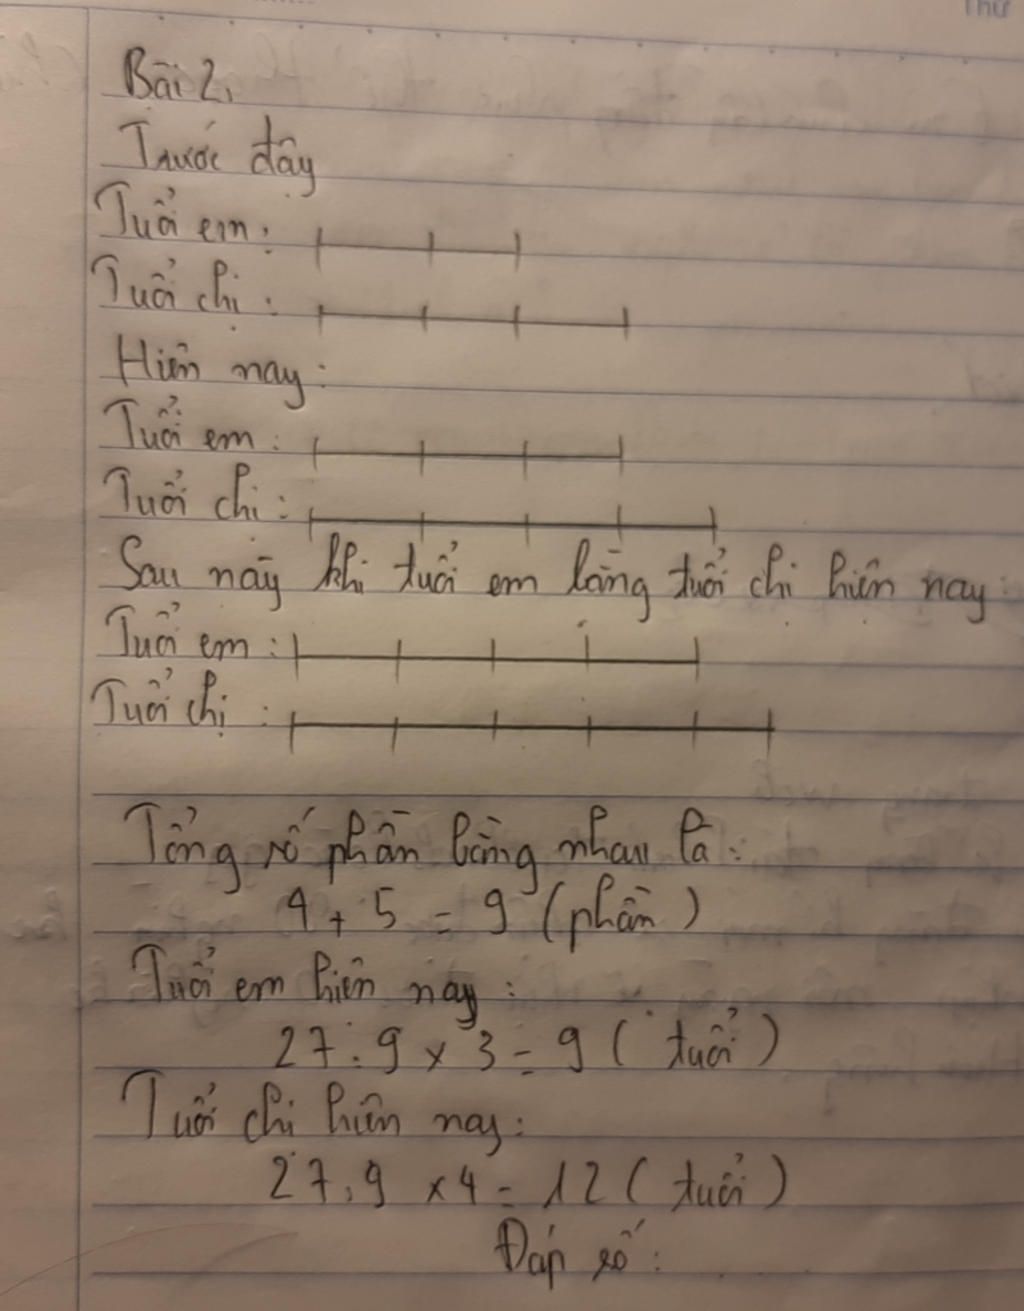 Thứ
Bài 2,
Trước đây
Tuổi em:
Tuổi chị:
Hiện nay:
Tuổi em:
Tuổi chị:
Sau này khi tuổi em bằng tuổi chị hiện nay:
Tuổi em:
Tuổi chị:
Tổng số phần bằng nhau là:
4 + 5 = 9 (phần)
Tuổi em hiện nay:
27 : 9 x 3 = 9 ( tuổi )
Tuổi chị hiện nay:
27 : 9 x 4 = 12 ( tuổi )
Đáp số: